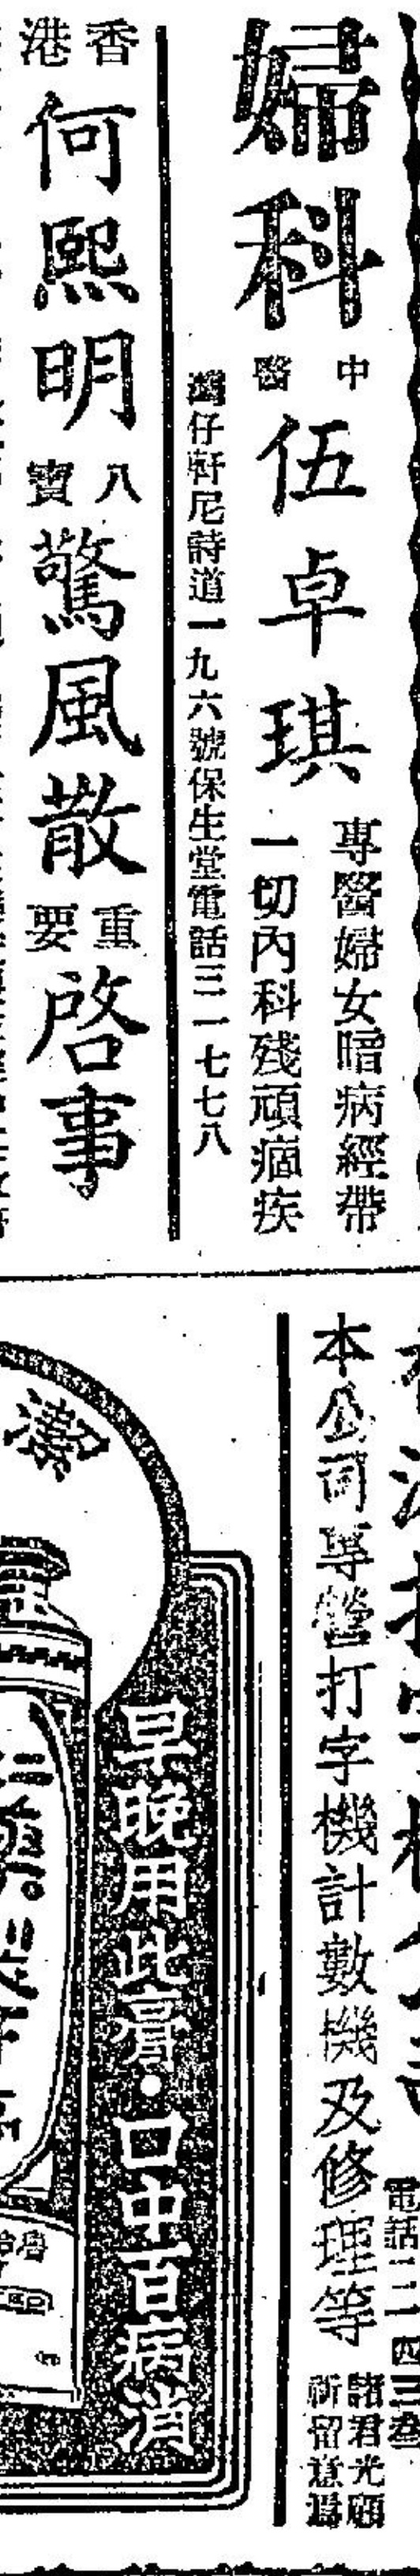 婦科
中醫
伍卓琪
專醫婦女暗病經帶
一切內科殘頑痼疾
灣仔軒尼詩道一九六號保生堂電話三一七七八
香港
何熙明
八寶
驚風散
重要
啓事
本公司專營打字機計數機及修理等
諸君光顧
祈留意焉
早晚用此膏·口中百病消
潔